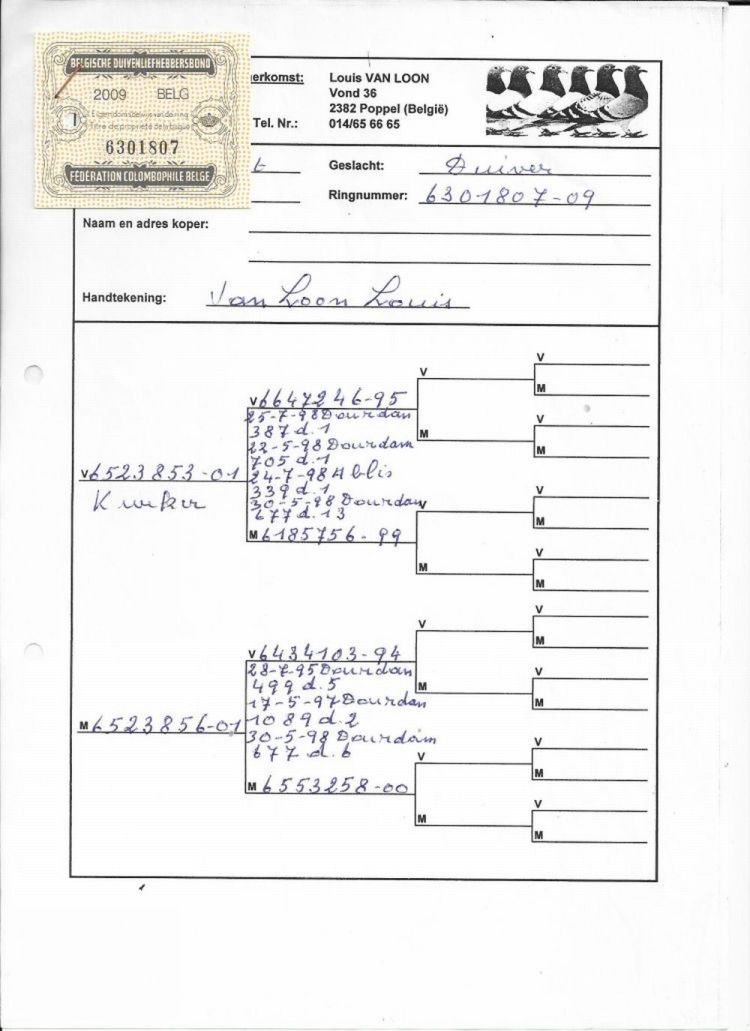 BELGISCHE DUIVENLIEFHEBBERSBOND
2009 BELG
Eigendomsbewijs van de ring
Titre de propriété de la bague
6301807
FÉDERATION COLOMBOPHILE BELGE
erkomst:
Louis VAN LOON
Vond 36
2382 Poppel (België)
Tel. Nr.: 014/65 66 65
t
Geslacht: Duiver
Ringnummer: 6301807-09
Naam en adres koper:
Handtekening: Van Loon Louis
V
M
V 6647246-95
25-7-98 Dourdan
387 d.1
22-5-98 Dourdam
705 d.1
24-7-98 Ablis
339 d.1
30-5-98 Dourdan
677 d.13
V
V
M
M
V
M
V 6523853-01
Kweker
M 6185756-99
V
V
M
M
V
M
V 6434103-94
28-7-95 Dourdan
499 d.5
17-5-97 Dourdan
1089 d.2
30-5-98 Dourdam
677 d.6
V
V
M
M
V
M
M 6523856-01
M 6553258-00
V
V
M
M
V
M